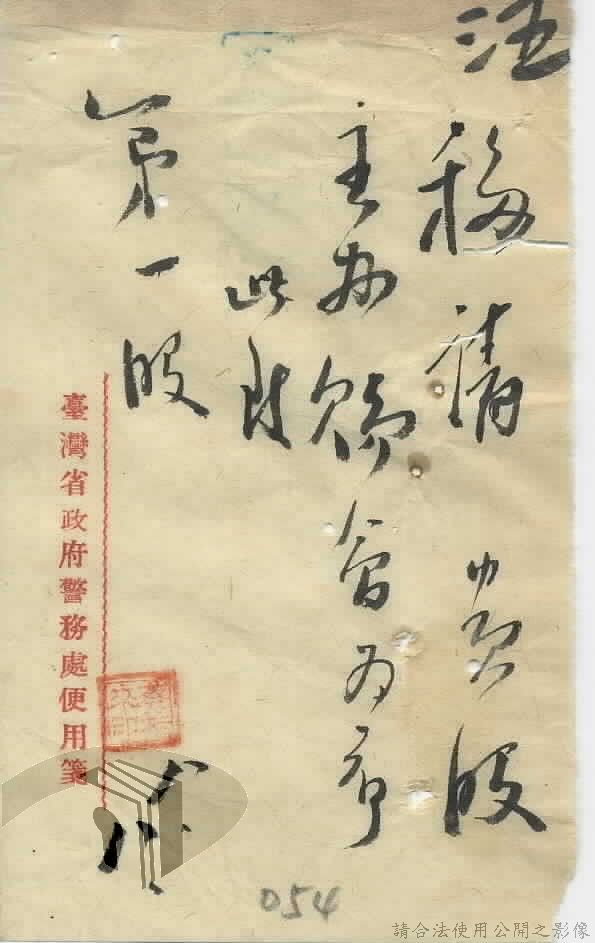 移請貴股
主办會为荷
此致
第一股
臺灣省政府警務處便用箋
054
請合法使用公開之影像